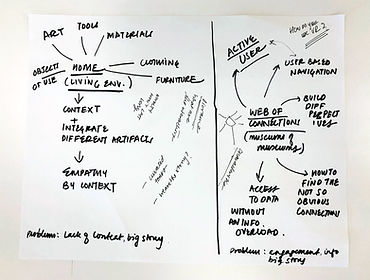 ART
TOOLS
MATERIALS
OBJECTS
OF USE
HOME
(LIVING ENV.)
CLOTHING
FURNITURE
CONTEXT
+
INTEGRATE
DIFFERENT ARTIFACTS
EMPATHY
BY CONTEXT
Problem: Lack of context, big story
ACTIVE
USER
USER BASED
NAVIGATION
WEB OF
CONNECTIONS
(museums of
museums)
BUILD
DIFF
PERSPECT
IVES
ACCESS
TO DATA
WITHOUT
AN INFO.
OVERLOAD.
HOW TO
FIND THE
NOT SO
OBVIOUS
CONNECTION
Problem: engagement, info
big story